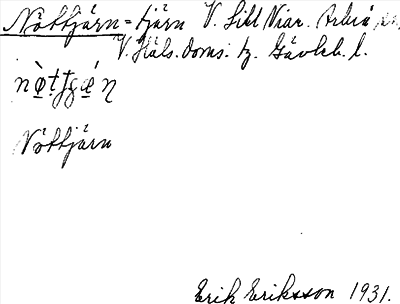 Nöttjärn = tjärn V. Sibl Viar. Arbrå sn.
V. Häls. doms. tg. Gävleb. l.
nø̀tʈgǽɳ
Nöttjärn
Erik Eriksson 1931.